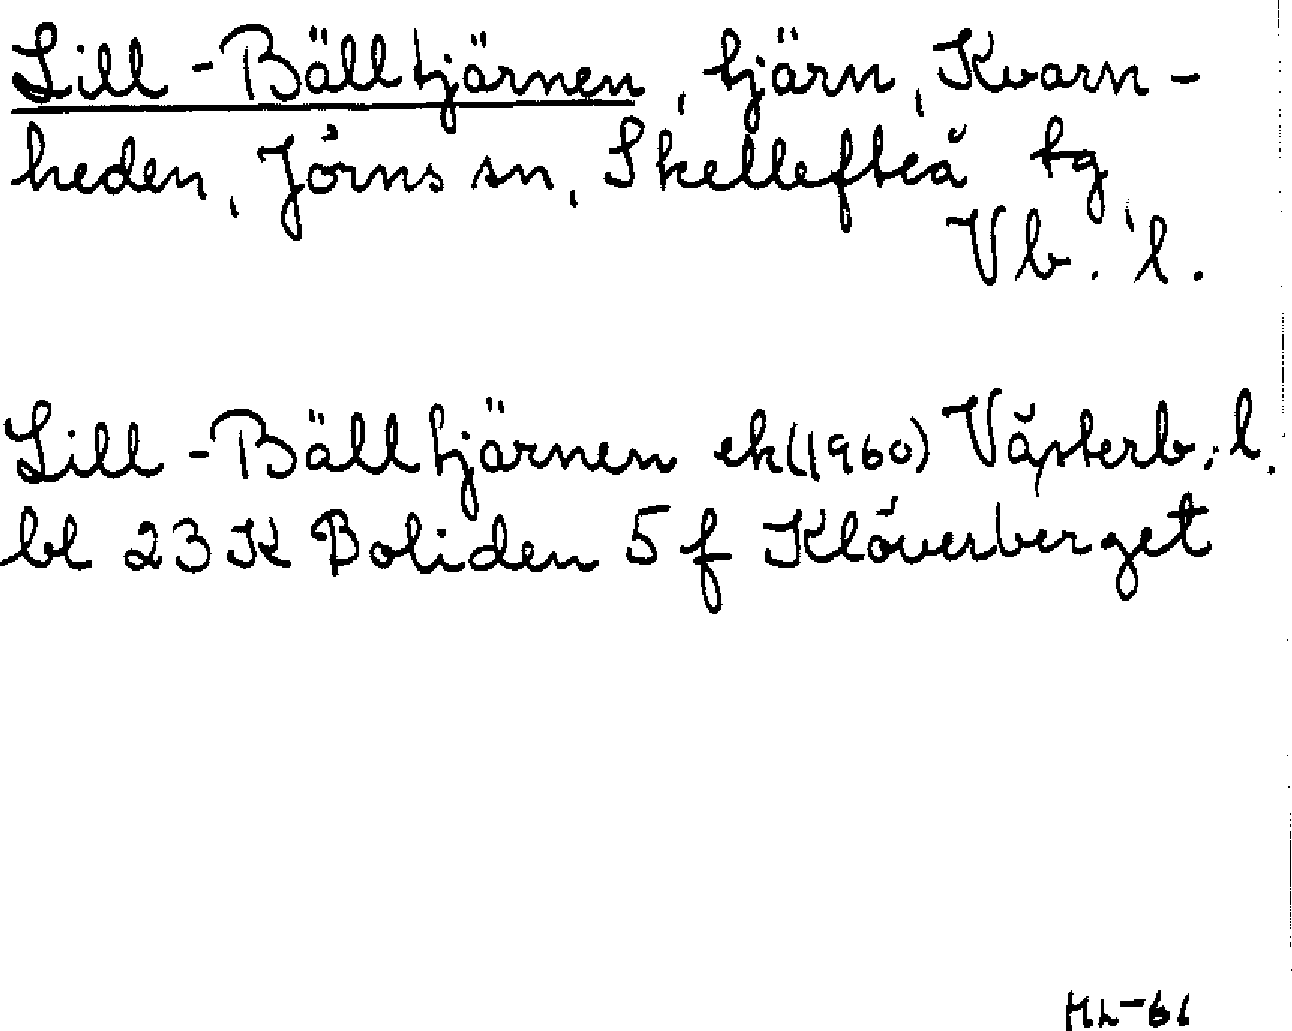 Lill-Bälltjärnen, tjärn, Kvarn-
heden, Jörns sn, Skellefteå tg,
Vb. l.
Lill-Bälltjärnen ek(1960) Västerb. l.
bl 23 K Boliden 5 f Klöverberget
HL-61